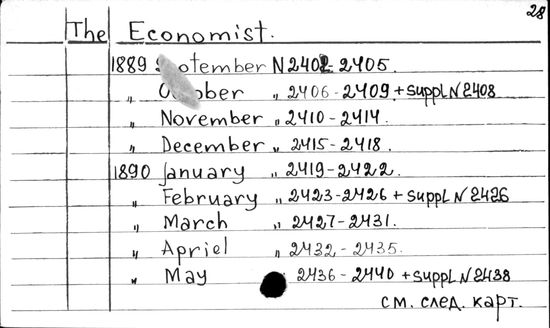 28
The Economist.
1889 September N 2402-2405.
„ October „ 2406-2409. + Suppl. N 2408
„ November „ 2410-2414.
„ December „ 2415-2418.
1890 January „ 2419-2422.
„ February „ 2423-2426 + Suppl. N 2426
„ March „ 2427-2431.
„ Apriel „ 2432-2435.
„ May 2436-2440 + Suppl. N 2438
см. след. карт.